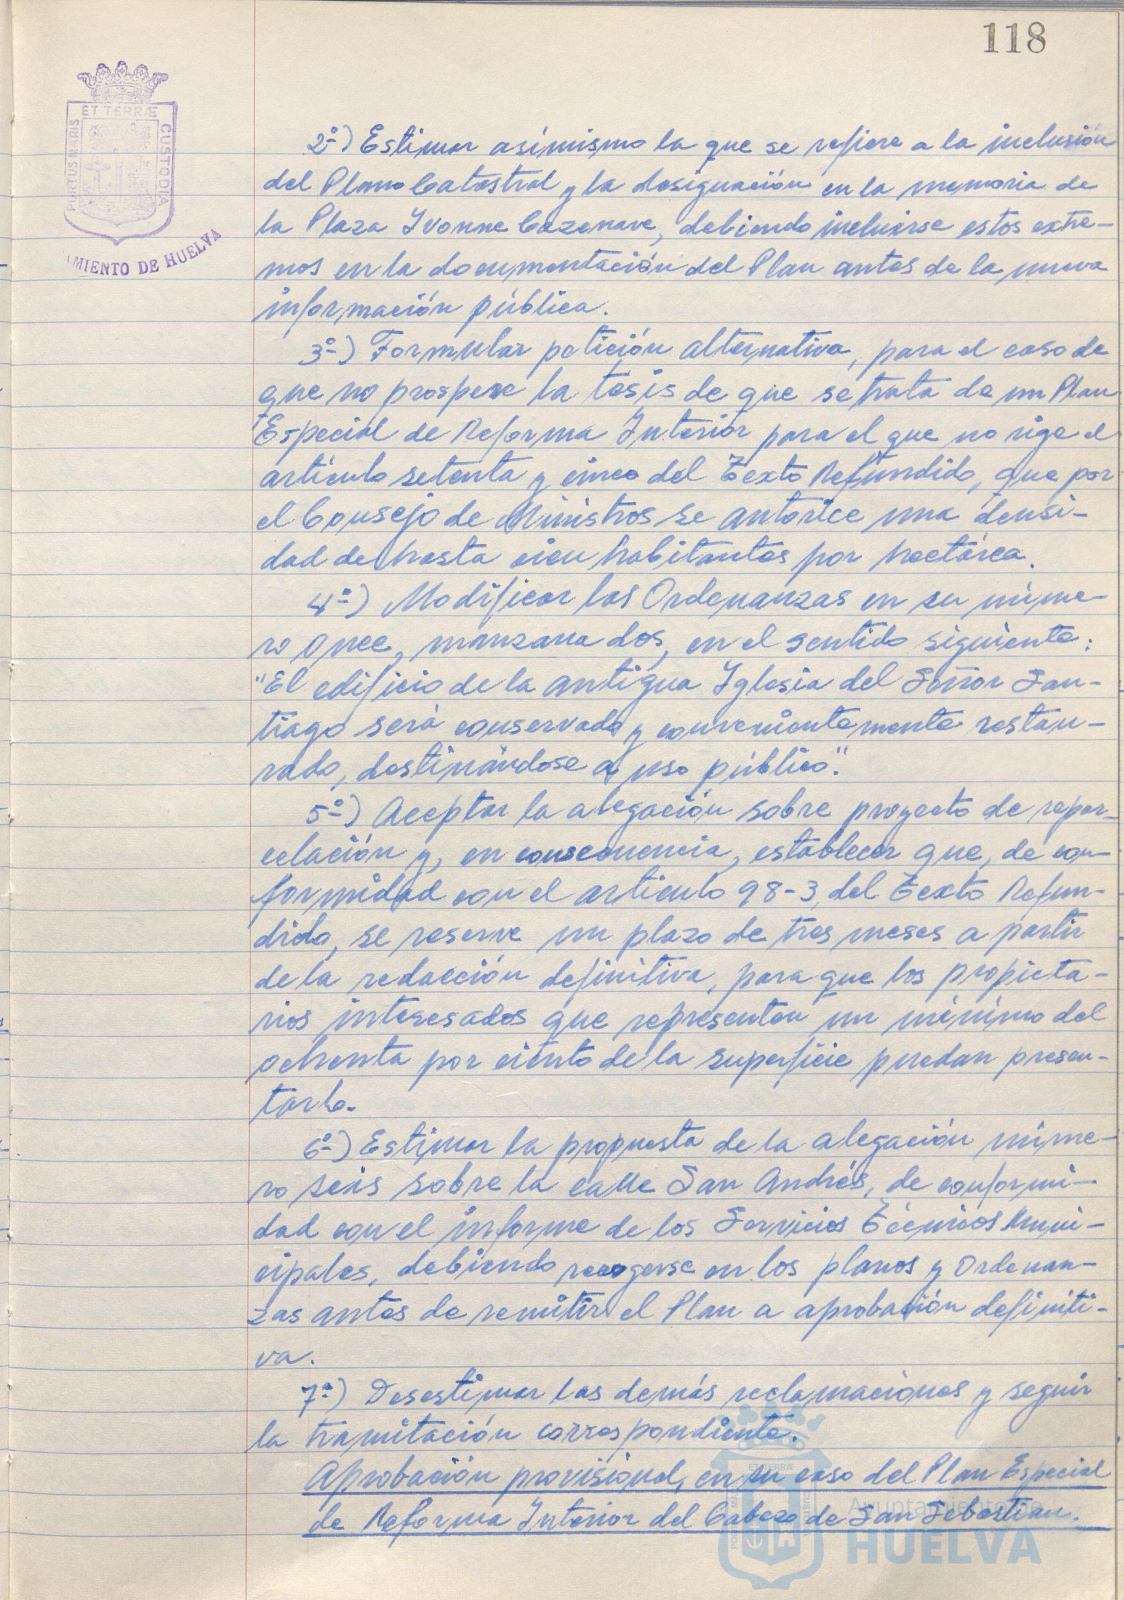 118
ET TERRÆ
PORTUS MARIS
CUSTODIA
AMIENTO DE HUELVA
2º) Estimar asímismo la que se refiere a la inclusión
del Plano Catastral y la designación en la memoria de
la Plaza Yvonne Cazenave, debiendo incluirse estos extre-
mos en la documentación del Plan antes de la nueva
información pública.
3º) Formular petición alternativa, para el caso de
que no prospere la tesis de que se trata de un Plan
Especial de Reforma Interior para el que no rige el
artículo setenta y cinco del Texto Refundido, que por
el Consejo de Ministros se autorice una densi-
dad de hasta cien habitantes por hectárea.
4º) Modificar las Ordenanzas en su núme-
ro once, manzana dos, en el sentido siguiente:
"El edificio de la antigua Iglesia del Señor San-
tiago será conservado y convenientemente restau-
rado, destinándose a uso público".
5º) Aceptar la alegación sobre proyecto de repar-
celación y, en consecuencia, establecer que, de con-
formidad con el artículo 98-3, del Texto Refun-
dido, se reserve un plazo de tres meses a partir
de la redacción definitiva, para que los propieta-
rios interesados que representen un mínimo del
ochenta por ciento de la superficie puedan presen-
tarlo.
6º) Estimar la propuesta de la alegación núme-
ro seis sobre la calle San Andrés, de conformi-
dad con el informe de los Servicios Técnicos Muni-
cipales, debiendo recogerse en los planos y Ordenan-
zas antes de remitir el Plan a aprobación definiti-
va.
7º) Desestimar las demás reclamaciones y seguir
la tramitación correspondiente.
Aprobación provisional, en su caso del Plan Especial
de Reforma Interior del Cabezo de San Sebastián.
Ayuntamiento de
HUELVA